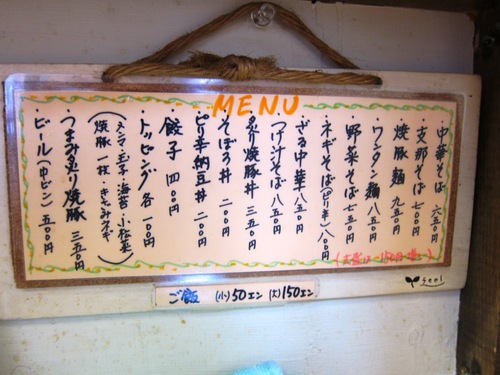 MENU
・中華そば 六五〇円
・支那そば 七〇〇円
・焼豚麺 九五〇円
・ワンタン麺 八五〇円
・野菜そば 七五〇円
・ネギそば(ピリ辛) 八〇〇円
・ざる中華 八五〇円
・つけ汁そば 八五〇円
・炙り焼豚丼 三五〇円
・そぼろ丼 二〇〇円
・ピリ辛納豆丼 二〇〇円
・餃子 四〇〇円
・トッピング 各一〇〇円
(メンマ・玉子・海苔・小松菜
焼豚一枚・きざみネギ)
・つまみ炙り焼豚 三五〇円
・ビール(中ビン) 五〇〇円
(大盛は 150円増)
ご飯 (小)50エン (大)150エン